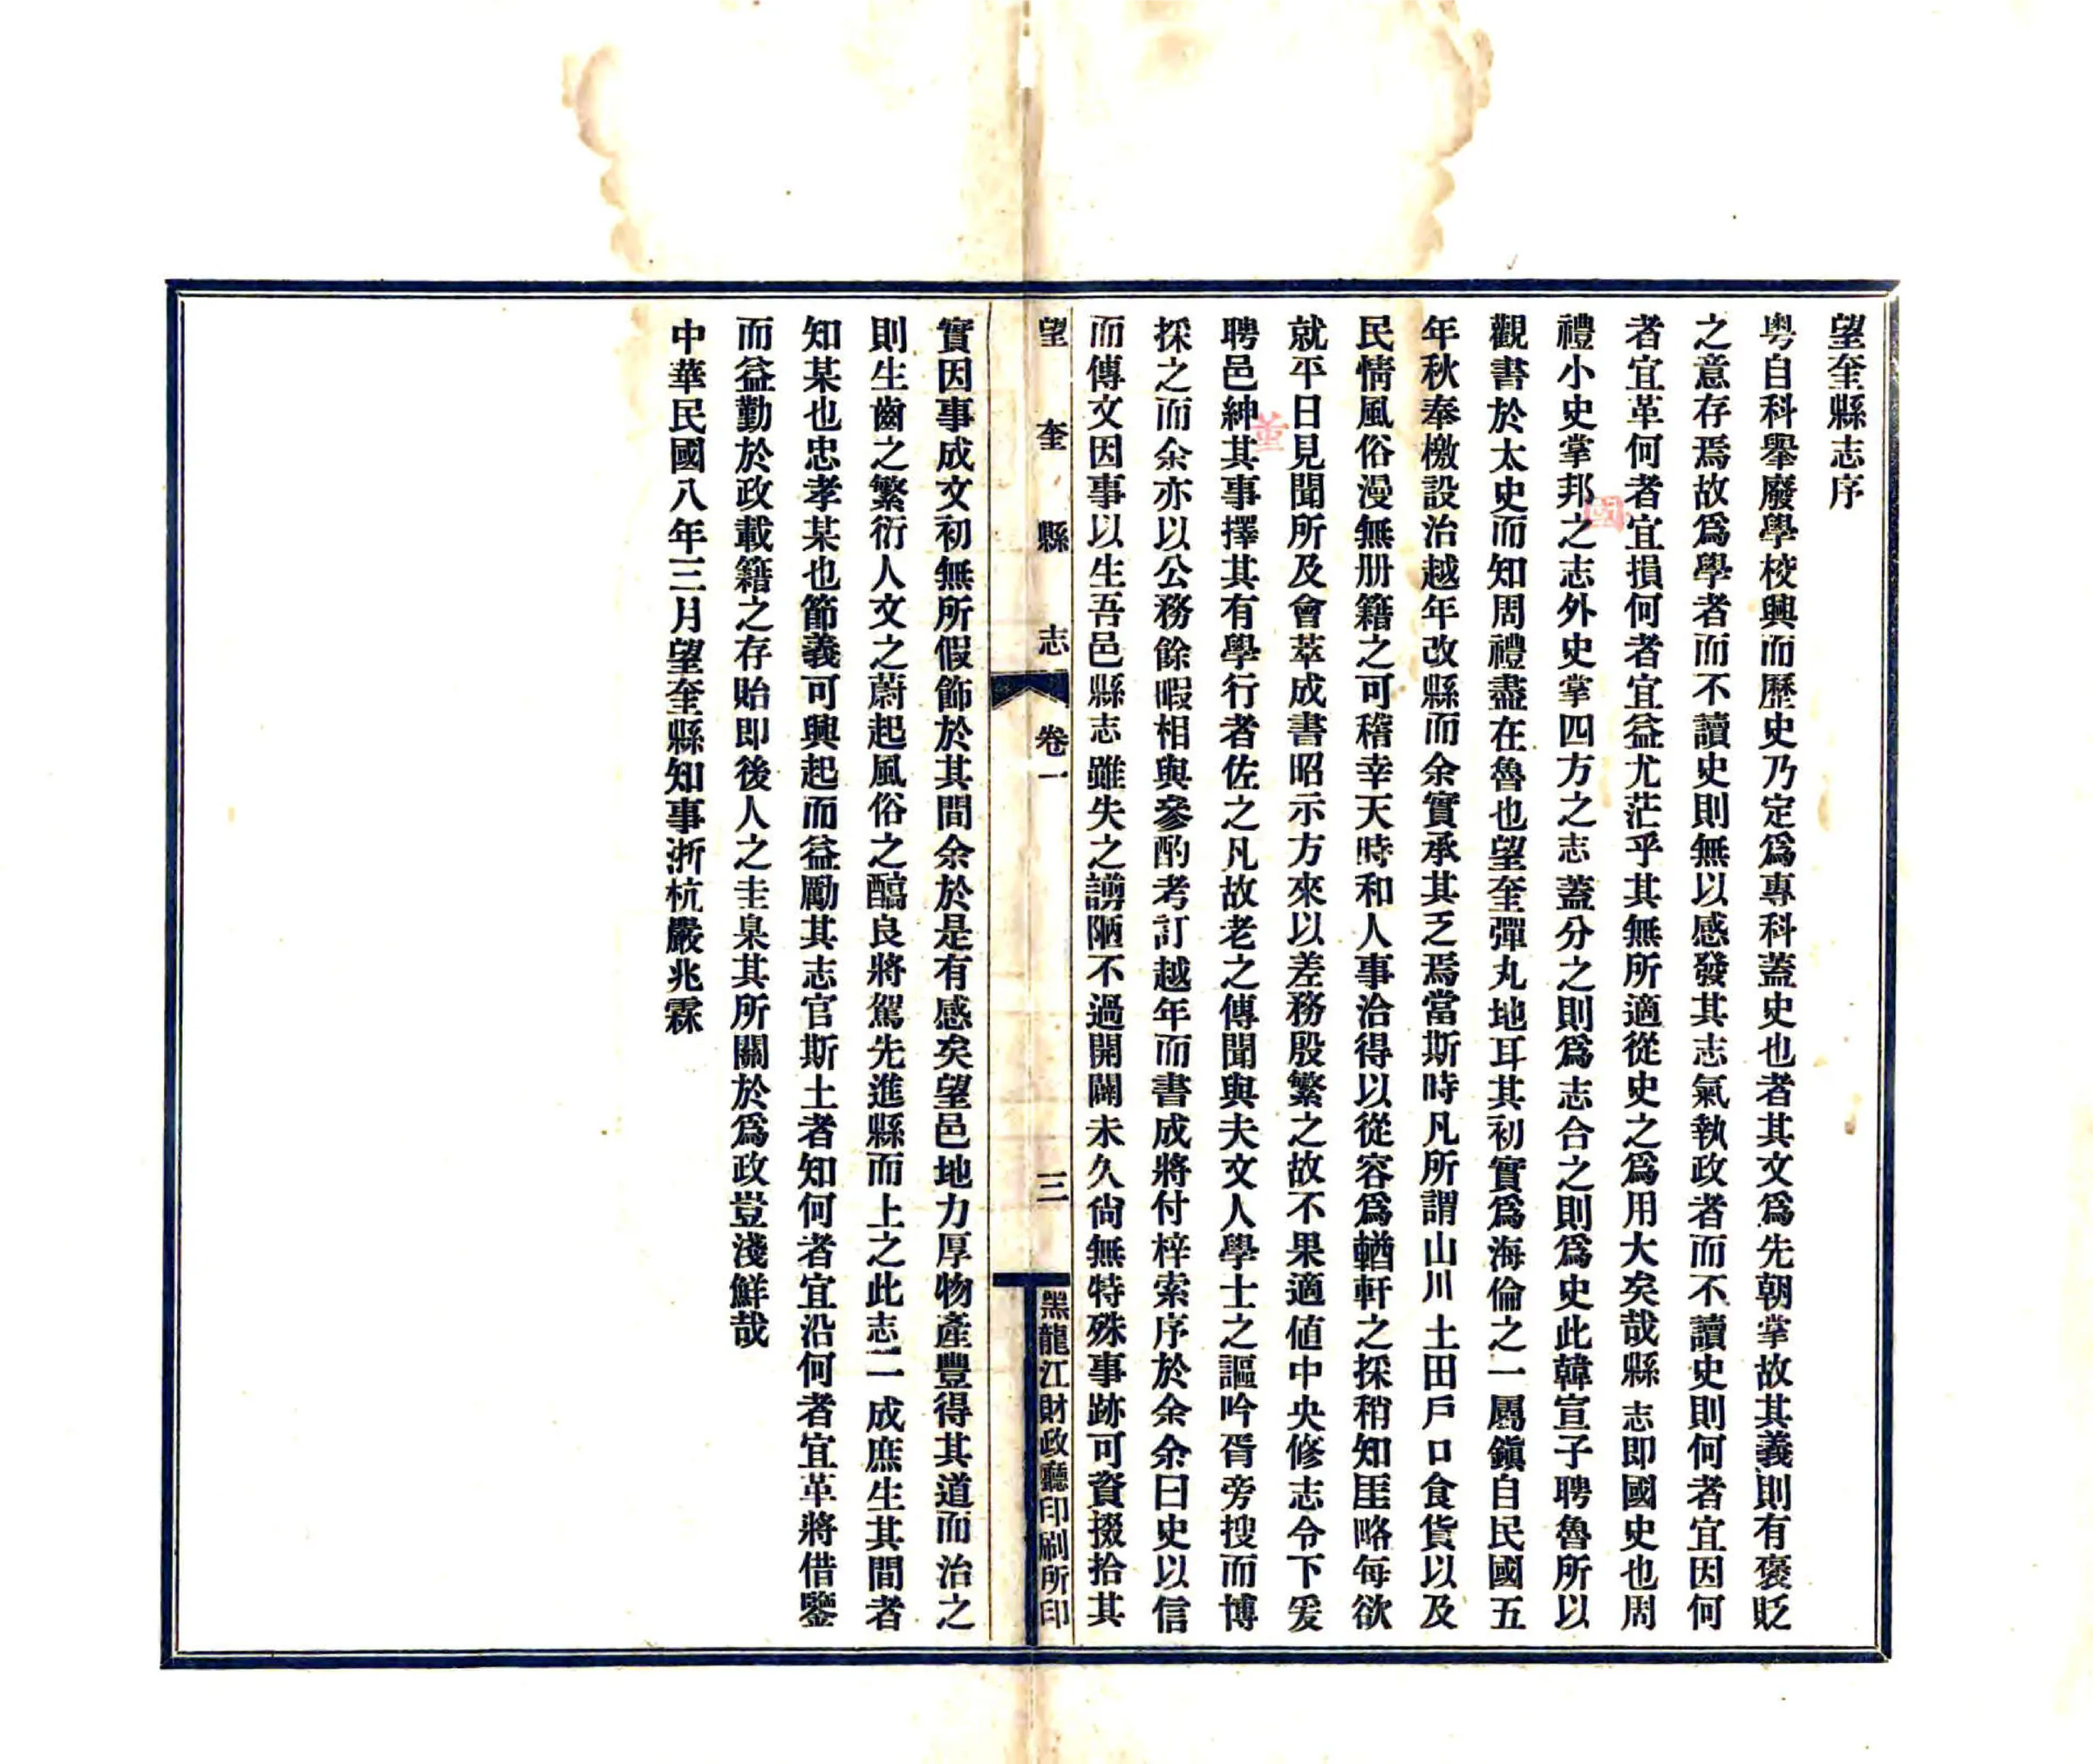 望奎縣志序
粤自科舉廢學校興而歷史乃定爲專科蓋史也者其文爲先朝掌故其義則有褒貶
之意存焉故爲學者而不讀史則無以感發其志氣執政者而不讀史則何者宜因何
者宜革何者宜損何者宜益尤茫乎其無所適從史之爲用大矣哉縣志即國史也周
禮小史掌邦之志外史掌四方之志蓋分之則爲志合之則爲史此韓宣子聘魯所以
觀書於太史而知周禮盡在魯也望奎彈丸地耳其初實爲海倫之一屬鎭自民國五
年秋奉檄設治越年改縣而余實承其乏焉當斯時凡所謂山川土田戶口食貨以及
民情風俗漫無册籍之可稽幸天時和人事洽得以從容爲輶軒之採稍知厓略每欲
就平日見聞所及會萃成書昭示方來以差務殷繁之故不果適値中央修志令下爰
聘邑紳其事擇其有學行者佐之凡故老之傳聞與夫文人學士之謳吟胥旁搜而博
採之而余亦以公務餘暇相與參酌考訂越年而書成將付梓索序於余余曰史以信
而傳文因事以生吾邑縣志雖失之譾陋不過開闢未久尙無特殊事跡可資掇拾其
望奎縣志 卷一 三 黑龍江財政廳印刷所印
實因事成文初無所假飾於其間余於是有感矣望邑地力厚物產豐得其道而治之
則生齒之繁衍人文之蔚起風俗之醕良將駕先進縣而上之此志二成庶生其間者
知某也忠孝某也節義可興起而益勵其志官斯土者知何者宜沿何者宜革將借鑒
而益勤於政載籍之存貽即後人之圭臬其所關於爲政豈淺鮮哉
中華民國八年三月望奎縣知事浙杭嚴兆霖
董
國